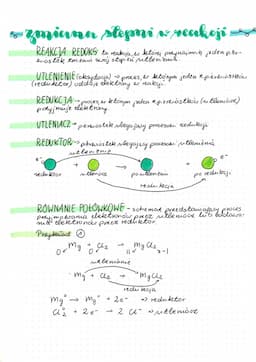 zmienna stopni w reakcji
REAKCJA REDOKS to reakcja w której przynajmniej jeden pier-
wiastek zmienia swój stopień utlenienia
UTLENIENIE (oksydacja) → proces w którym jeden z pierwiastków
(reduktor) oddaje elektrony w reakcji.
REDUKCJA → proces w którym jeden z pierwiastków (utleniacz)
przyjmuje elektrony
UTLENIACZ - pierwiastek ulegający procesowi redukcji
REDUKTOR - pierwiastek ulegający procesowi utlenienia
utlenienie
e-
reduktor
utleniacz
po utlenieniu
po redukcji
redukcja
RÓWNANIE POŁÓWKOWE - schemat przedstawiający proces
przyjmowania elektronów przez utleniacz lub oddawa-
nia elektronów przez reduktor.
Przykład 1
Mg + Cl2 → MgCl2
0 0 II -1
utlenianie
Mg + Cl2 → MgCl2
redukcja
Mg → Mg + 2e- → reduktor
Cl2 + 2e- → 2 Cl- → utleniacz